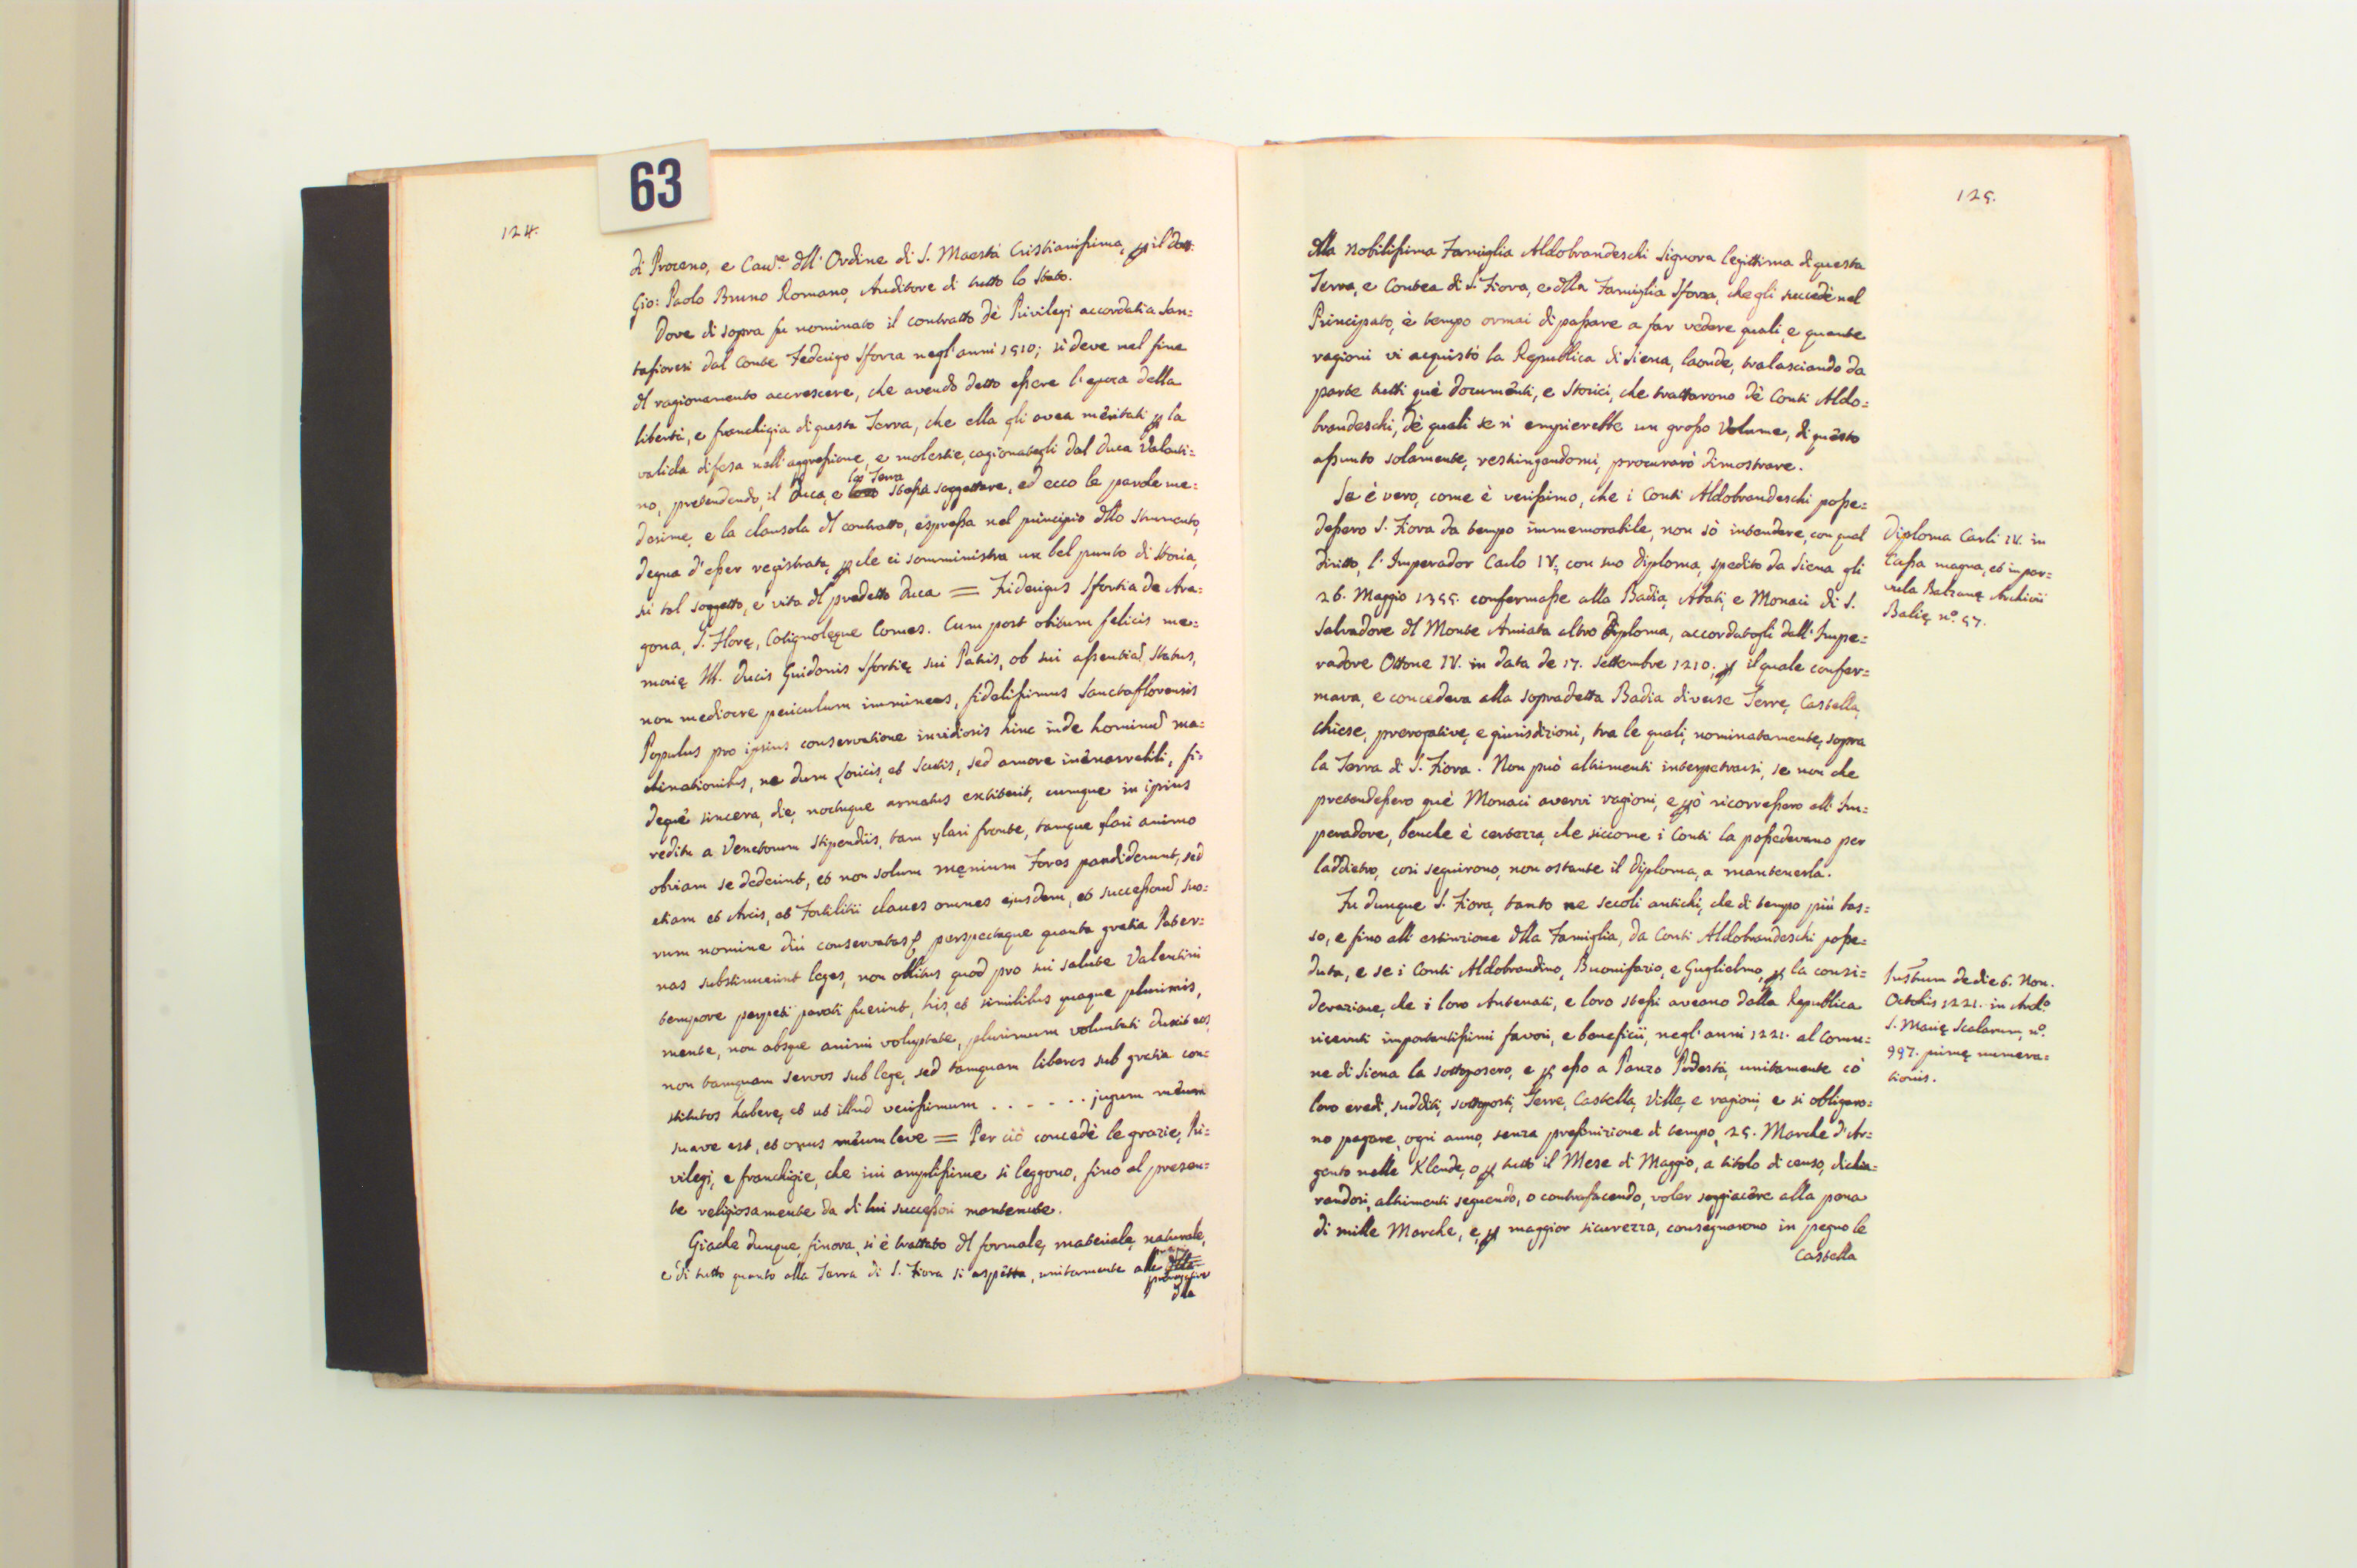 63
124.
di Proceno, e Cav.e dll'Ordine di S. Maestà Cristianissima, p il Dott:
Gio: Paolo Bruno Romano, Auditore di tutto lo Stato.
Dove di sopra fu nominato il contratto dè Privilegi accordati a San=
tafioresi dal Conte Federigo Sforza negl'anni 1510; si deve nel fine
dl ragionamento accrescere, che avendo detto essere l'epoca della
libertà, e franchigia di questa Terra, che ella gli avea meritati p la
valida difesa nell'aggressione, e molestie, cagionategli dal Duca Valenti=
no, pretendendo, il Duca, e la Terra stessa soggettare, ed ecco le parole me=
desime, e la clausola dl contratto, espressa nel principio dllo strumento,
degna d'esser registrata, p che ci somministra un bel punto di storia,
sù tal soggetto, e vita dl predetto Duca = Fiderigus Sfortia de Ara=
gona, S. Florę, Cotignolęque Comes. Cum post obitum felicis me=
morię Ill. Ducis Guidonis Sfortię sui Patris, ob sui assentiam, Status,
non mediocre periculum immineres, fidelissimus Sanctaflorensis
Populus pro ipsius conservatione invidiosis hinc inde hominum ma=
chinationibus, ne dum Loricis, et Scutis, sed amore inenarrabili, fi=
deque sincera, die, noctuque armatus extiterit, cumque in ipsius
reditu a Venetorum stipendiis, tam ylari fronte, tamque ylari animo
obviam se dederint, et non solum męnium Fores pandiderunt, sed
etiam et Arcis, et Fortilitii claves omnes ejusdem, et successorum suo=
rum nomine diù conservatas, perspectaque quanta gratia Pater=
nas substinuerint leges, non oblitus quod pro sui salute Valentini
tempore perpeti parati fuerint, his, et similibus quaque plurimis,
mente, non absque animi voluptate, plurimum voluntati duxit eos,
non tamquam servos sub lege, sed tamquam liberos sub gratia con=
stitutos habere, et ut illud verissimum . . - - . . jugum meum
suave est, et onus meum leve = Per ciò concedè le grazie, Pri=
vilegi, e franchigie, che ivi amplissime si leggono, fino al presen=
te religiosamente da di lui successori mantenute.
Giache dunque, finora, si è trattato dl formale, materiale, naturale,
e di tutto quanto alla Terra di S. Fiora si aspetta, unitamente alle
prerogative
dlla
125.
dlla Nobilissima Famiglia Aldobrandeschi Signora legittima di questa
Terra, e Contea di S. Fiora, e dlla Famiglia Sforza, che gli succedè nel
Principato, è tempo ormai di passare a far vedere quali, e quante
ragioni vi acquistò la Republica di Siena, laonde, tralasciando da
parte tutti què documenti, e Storici, che trattarono dè Conti Aldo=
brandeschi, dè quali se n'empierebbe un grosso Volume, di questo
assunto solamente, restingendomi, procurarò dimostrare.
Se è vero, come è verissimo, che i Conti Aldobrandeschi posse=
dessero S. Fiora da tempo immemorabile, non sò intendere, con qual
diritto, l'Imperador Carlo IV, con suo Diploma, spedito da Siena gli
26. Maggio 1355. confermasse alla Badia, Abati, e Monaci di S.
Salvadore dl Monte Amiata altro Diploma, accordatogli dall'Impe=
radore Ottone IV. in data de 17. Settembre 1210. p il quale confer=
mava, e concedeva alla sopradetta Badia diverse Terre, Castella,
Chiese, prerogative, e giurisdizioni, tra le quali, nominatamente, sopra
la Terra di S. Fiora. Non può altrimenti interpetrarsi, se non che
pretendessero què Monaci avervi ragioni, e pò ricorressero all'Im=
peradore, benche è certezza, che siccome i Conti la possedevano per
laddietro, così seguirono, non ostante il Diploma, a mantenerla.
Fu dunque S. Fiora, tanto ne secoli antichi, che di tempo più bas=
so, e fino all'estinzione dlla Famiglia, da Conti Aldobrandeschi posse=
duta, e se i Conti Aldobrandino, Buonifazio, e Guglielmo, p la consi=
derazione, che i loro Antenati, e loro stessi aveano dalla Republica
ricevuti importantissimi favori, e beneficii, negl'anni 1221. al Comu=
ne di Siena la sottoposero, e p esso a Panzo Podestà, unitamente cò
loro eredi, sudditi, sottoposti, Terre, Castella, Ville, e ragioni, e si obligaro=
no pagare, ogni anno, senza prefinizione di tempo, 25. Marche d'Ar=
gento nelle Klende, o p tutto il Mese di Maggio, a titolo di censo, dichia=
randosi, altrimenti seguendo, o contrafacendo, voler soggiacere alla pena
di mille Marche, e, p maggior sicurezza, consegnarono in pegno le
Castella
Diploma Carli IV. in
Cassa magna, et in par=
vula Balzanę Archivii
Balię n.o 57.
Instrum de die 6. Non.
Octobris 1221. in Archo
S. Marię Scalarum, n.o
997. primę numera=
tionis.